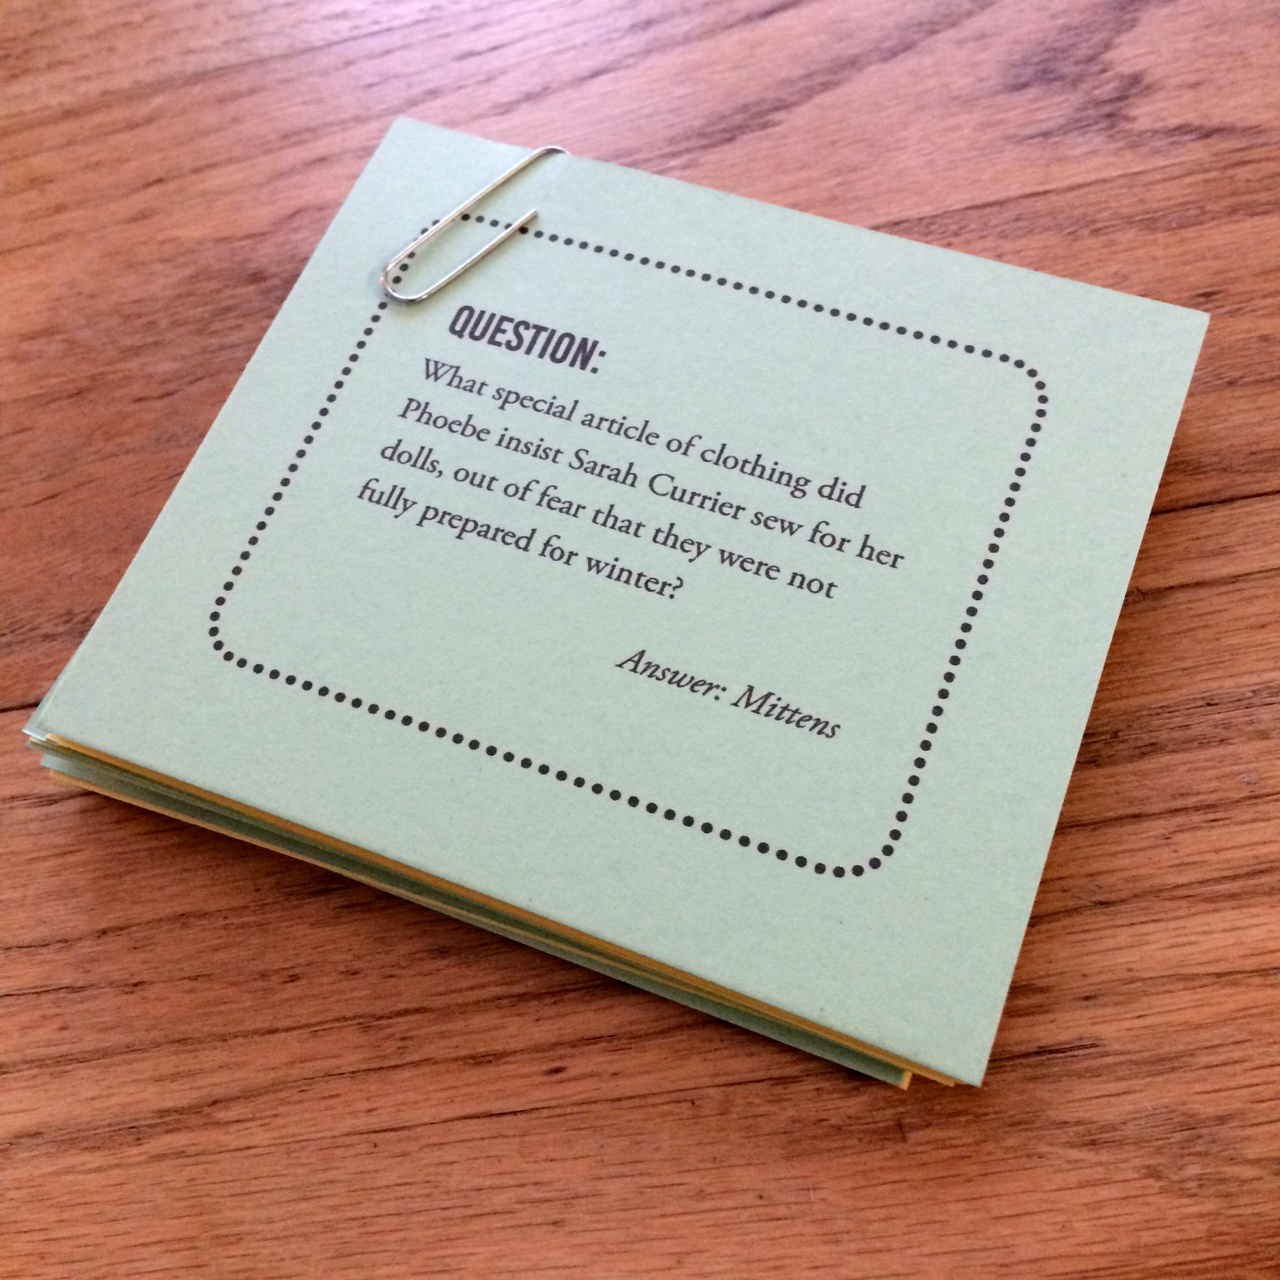 QUESTION:
What special article of clothing did
Phoebe insist Sarah Currier sew for her
dolls, out of fear that they were not
fully prepared for winter?
Answer: Mittens